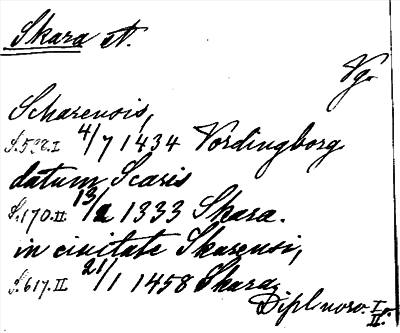 Skara st.
Vg.
Scharensis,
S. 582. I 4/7 1434 Vordingborg
datum Scaris
S. 170. II 13/2 1333 Skara.
in civitate Skarensi,
S. 617. II 21/1 1458 Skara.
Dipl. norv. I o
II.